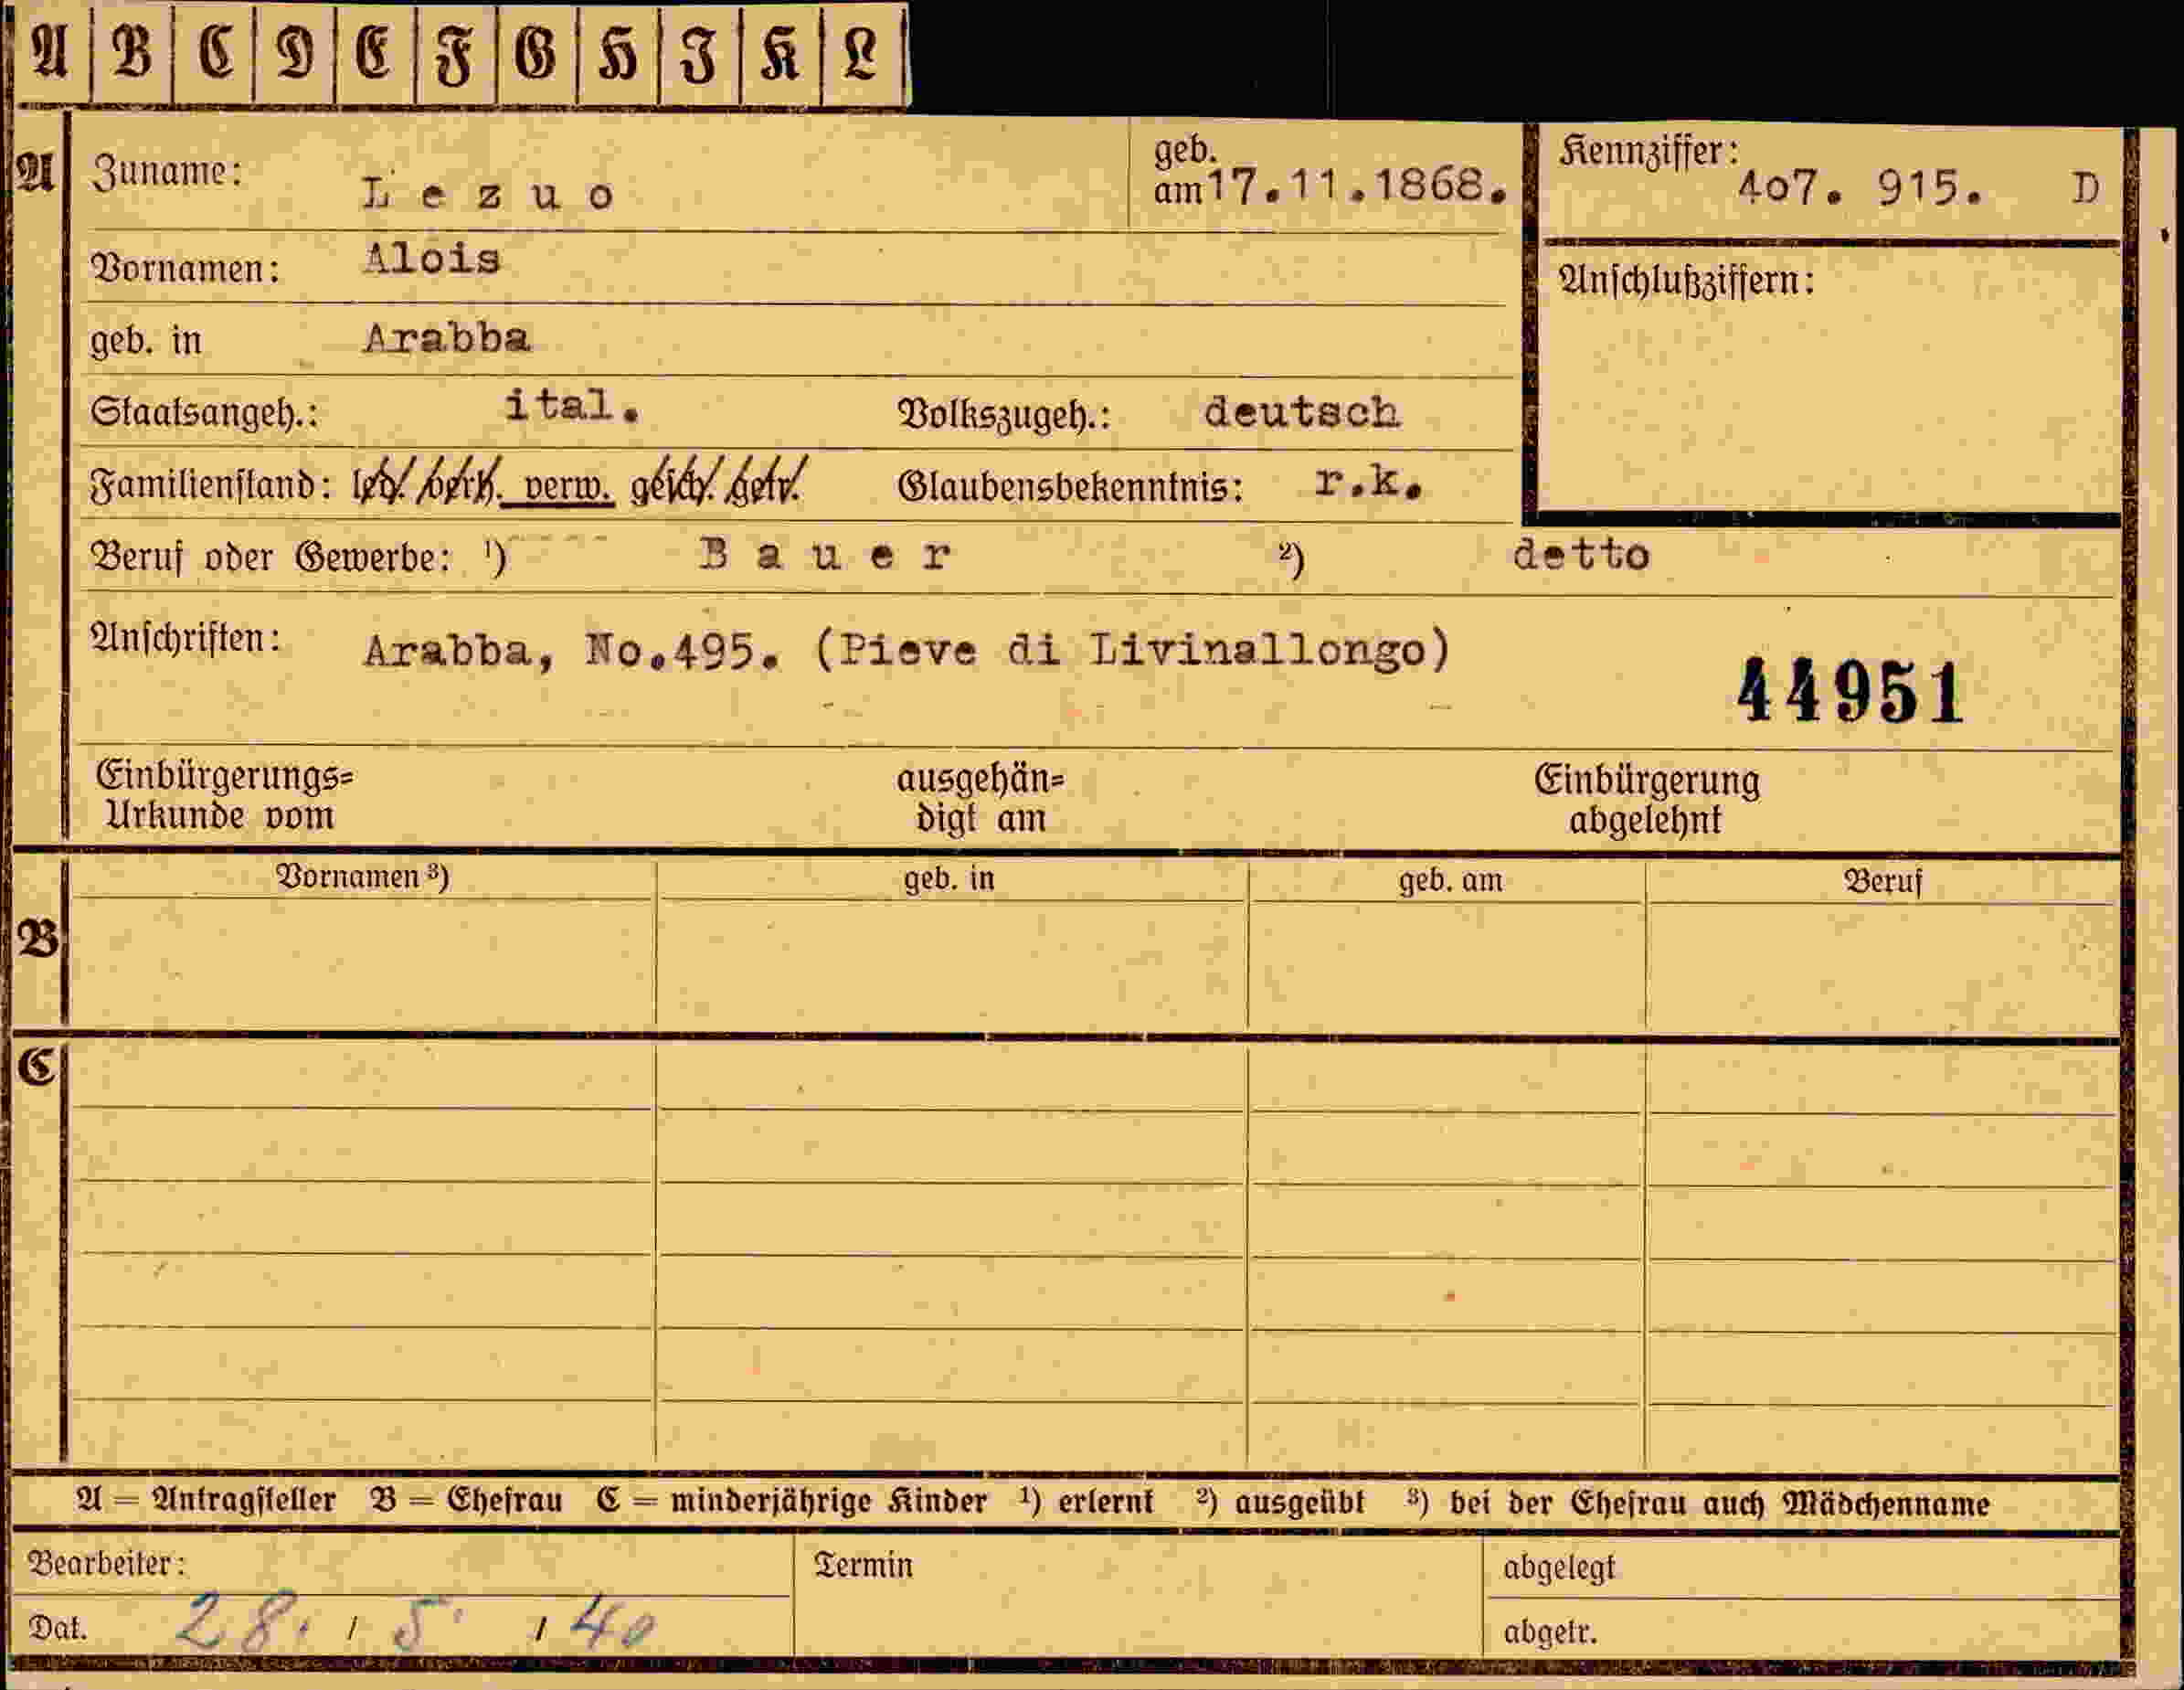 A B C D E F G H I K L
A Zuname: Lezuo geb. am 17.11.1868. Kennziffer: 4o7. 915. D
Vornamen: Alois Anschlußziffern:
geb. in Arabba
Staatsangeh.: ital. Volkszugeh.: deutsch
Familienstand: led. verh. verw. gesch. getr. Glaubensbekenntnis: r.k.
Beruf oder Gewerbe: ¹) Bauer ²) detto
Anschriften: Arabba, No.495. (Pieve di Livinallongo)
44951
Einbürgerungs= ausgehän= Einbürgerung
Urkunde vom digt am abgelehnt
Vornamen ³) geb. in geb. am Beruf
B
C
A = Antragsteller B = Ehefrau C = minderjährige Kinder ¹) erlernt ²) ausgeübt ³) bei der Ehefrau auch Mädchenname
Bearbeiter: Termin abgelegt
Dat. 28. / 5. / 40 abgetr.